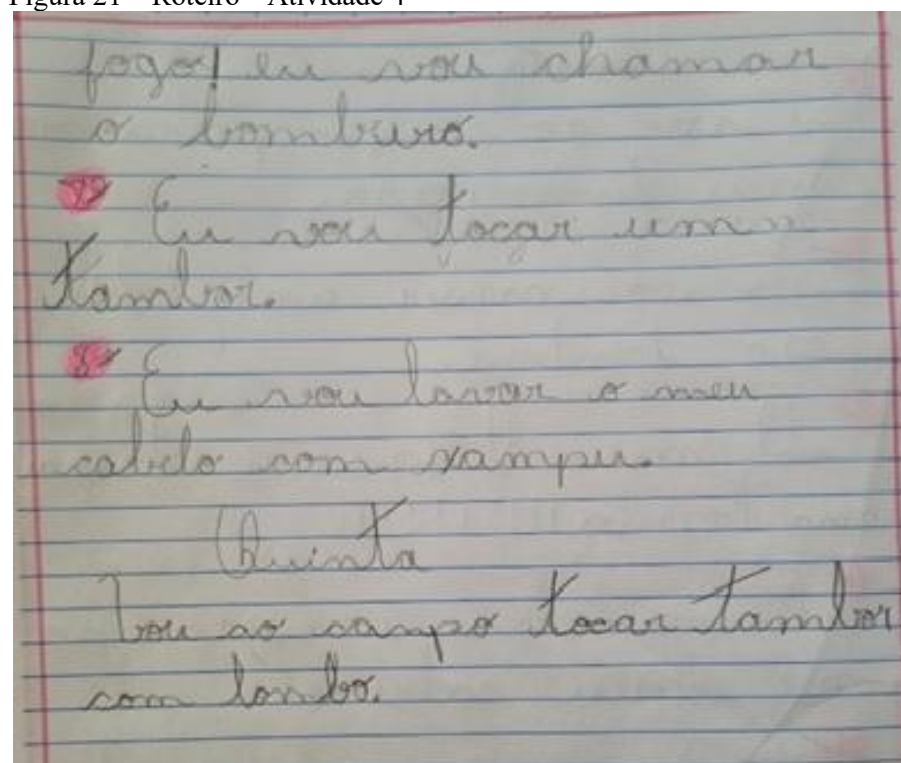 Figura 21 – Roteiro – Atividade 4
fogo! eu vou chamar
o bomburo.
7º Eu vou tocar umn
tambor.
8º Eu vou lavar o meu
cabelo com xampu.
Quinta
Vou ao campo tocar tambor
com